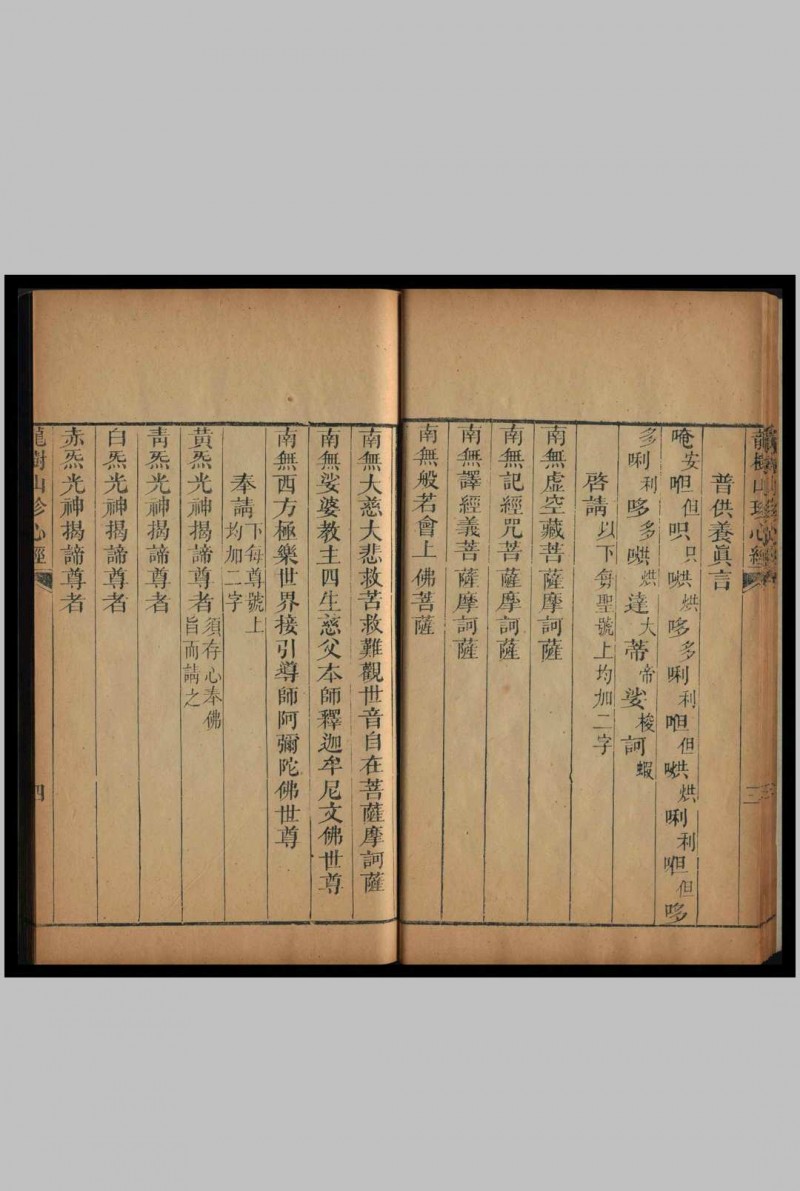 龍樹山珍心經
三
普供養眞言
唵安呾但呮只㗢烘哆多唎利呾但㗢烘唎利呾但哆
多唎利哆多㗢烘達大蒂帝娑梭訶蝦
啓請以下每聖號上均加二字
南無虛空藏菩薩摩訶薩
南無記經咒菩薩摩訶薩
南無譯經義菩薩摩訶薩
南無般若會上佛菩薩
南無大慈大悲救苦救難觀世音自在菩薩摩訶薩
南無娑婆教主四生慈父本師釋迦牟尼文佛世尊
南無西方極樂世界接引導師阿彌陀佛世尊
奉請下每尊號上均加二字
黃炁光神揭諦尊者須存心奉佛旨而請之
靑炁光神揭諦尊者
白炁光神揭諦尊者
赤炁光神揭諦尊者
龍樹山珍心經
四